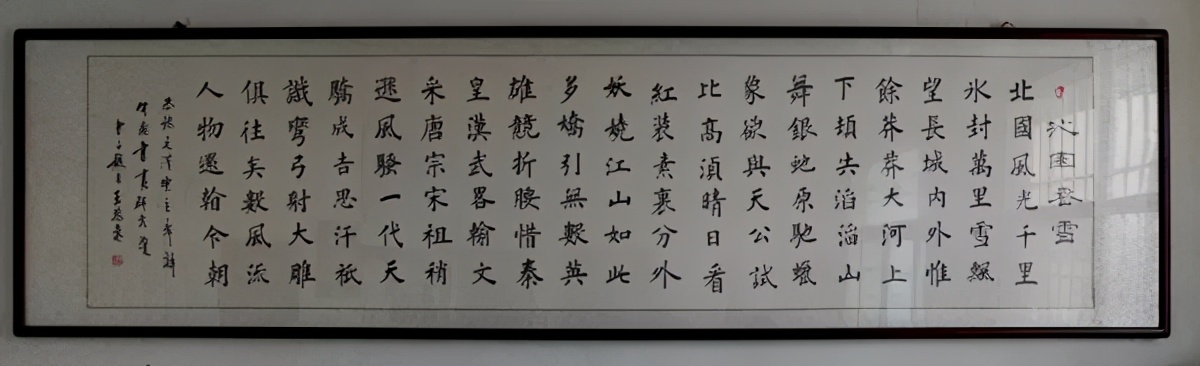 沁園春雪
北國風光千里
氷封萬里雪飄
望長城内外惟
餘莽莽大河上
下頓失滔滔山
舞銀蛇原馳蠟
象欲與天公試
比高須晴日看
紅裝素裹分外
妖嬈江山如此
多嬌引無數英
雄競折腰惜秦
皇漢武畧輸文
采唐宗宋祖稍
遜風騷一代天
驕成吉思汗祇
識彎弓射大雕
俱往矣數風流
人物還看今朝
恭錄毛澤東主席詞